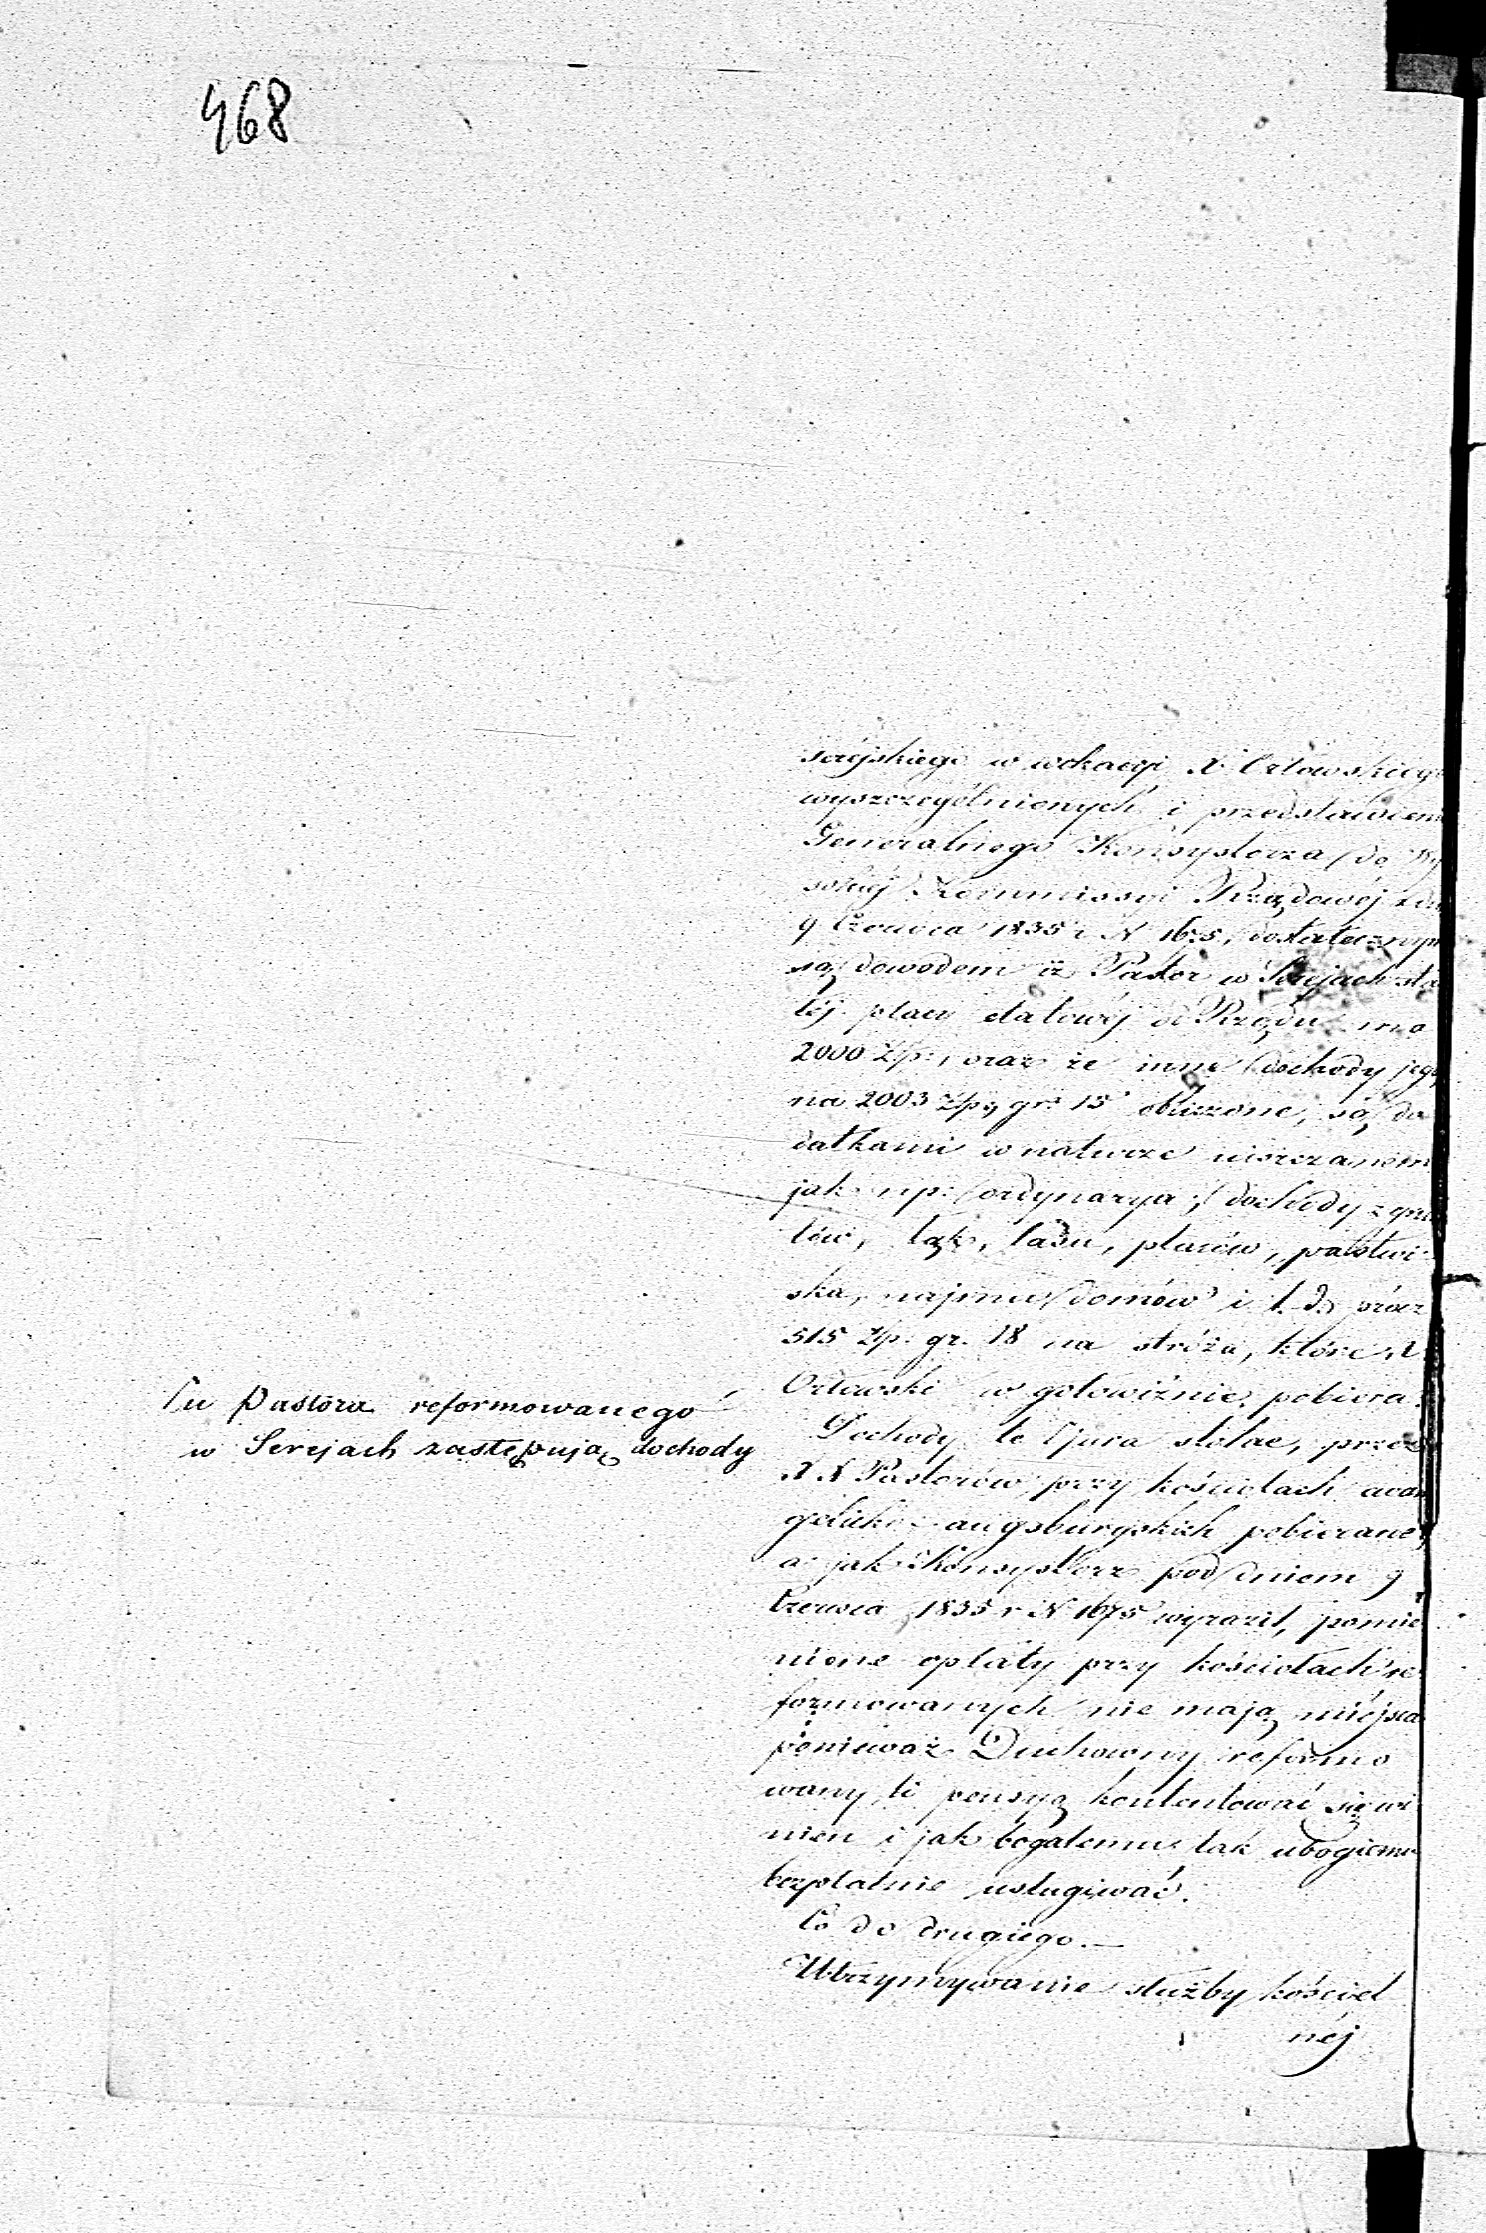 468
seréjskiego w wokacyi X Orłowskiego
wyszczególnionych i przedstawieni
Generalnego Konsystorza do Wy
sokiéj Kommissyi Rządowéj z dn
9 Czerwca 1835 r N 1675, dostatecznym
są dowodem iż Pastor w Serejach sta
łéj płacy etatowéj od Rządu ma
2000 Złp:, oraz że inne dochody jego
na 2003 Złp, gr. 15 obliczone, są do
datkami w naturze uiszczanem
jak np: ordynarya, dochody z grun
tów, łąk, lasu, placów, pastwi
ska, najmu domów i t. d. prócz
515 Złp. gr. 18 na stróża, które X
Orłowski w gotowiźnie pobiera.
Tu Pastora reformowanego
w Serejach zastępują dochody
Dochody te jura stolae, przez
XX Pastorów przy kościołach ewan
gelicko-augsburgskich pobierane,
a jak Konsystorz pod dniem 9
Czerwca 1835 r N 1675 wyraził, pomie
nione opłaty przy kościołach re
formowanych nie mają miéjsca
ponieważ Duchowny reformo
wany, tą pensyą kontentować się wi
nien i jak bogatemu tak ubogiemu
bezpłatnie usługiwać.
Co do drugiego.—
Utrzymywanie służby kościel
néj